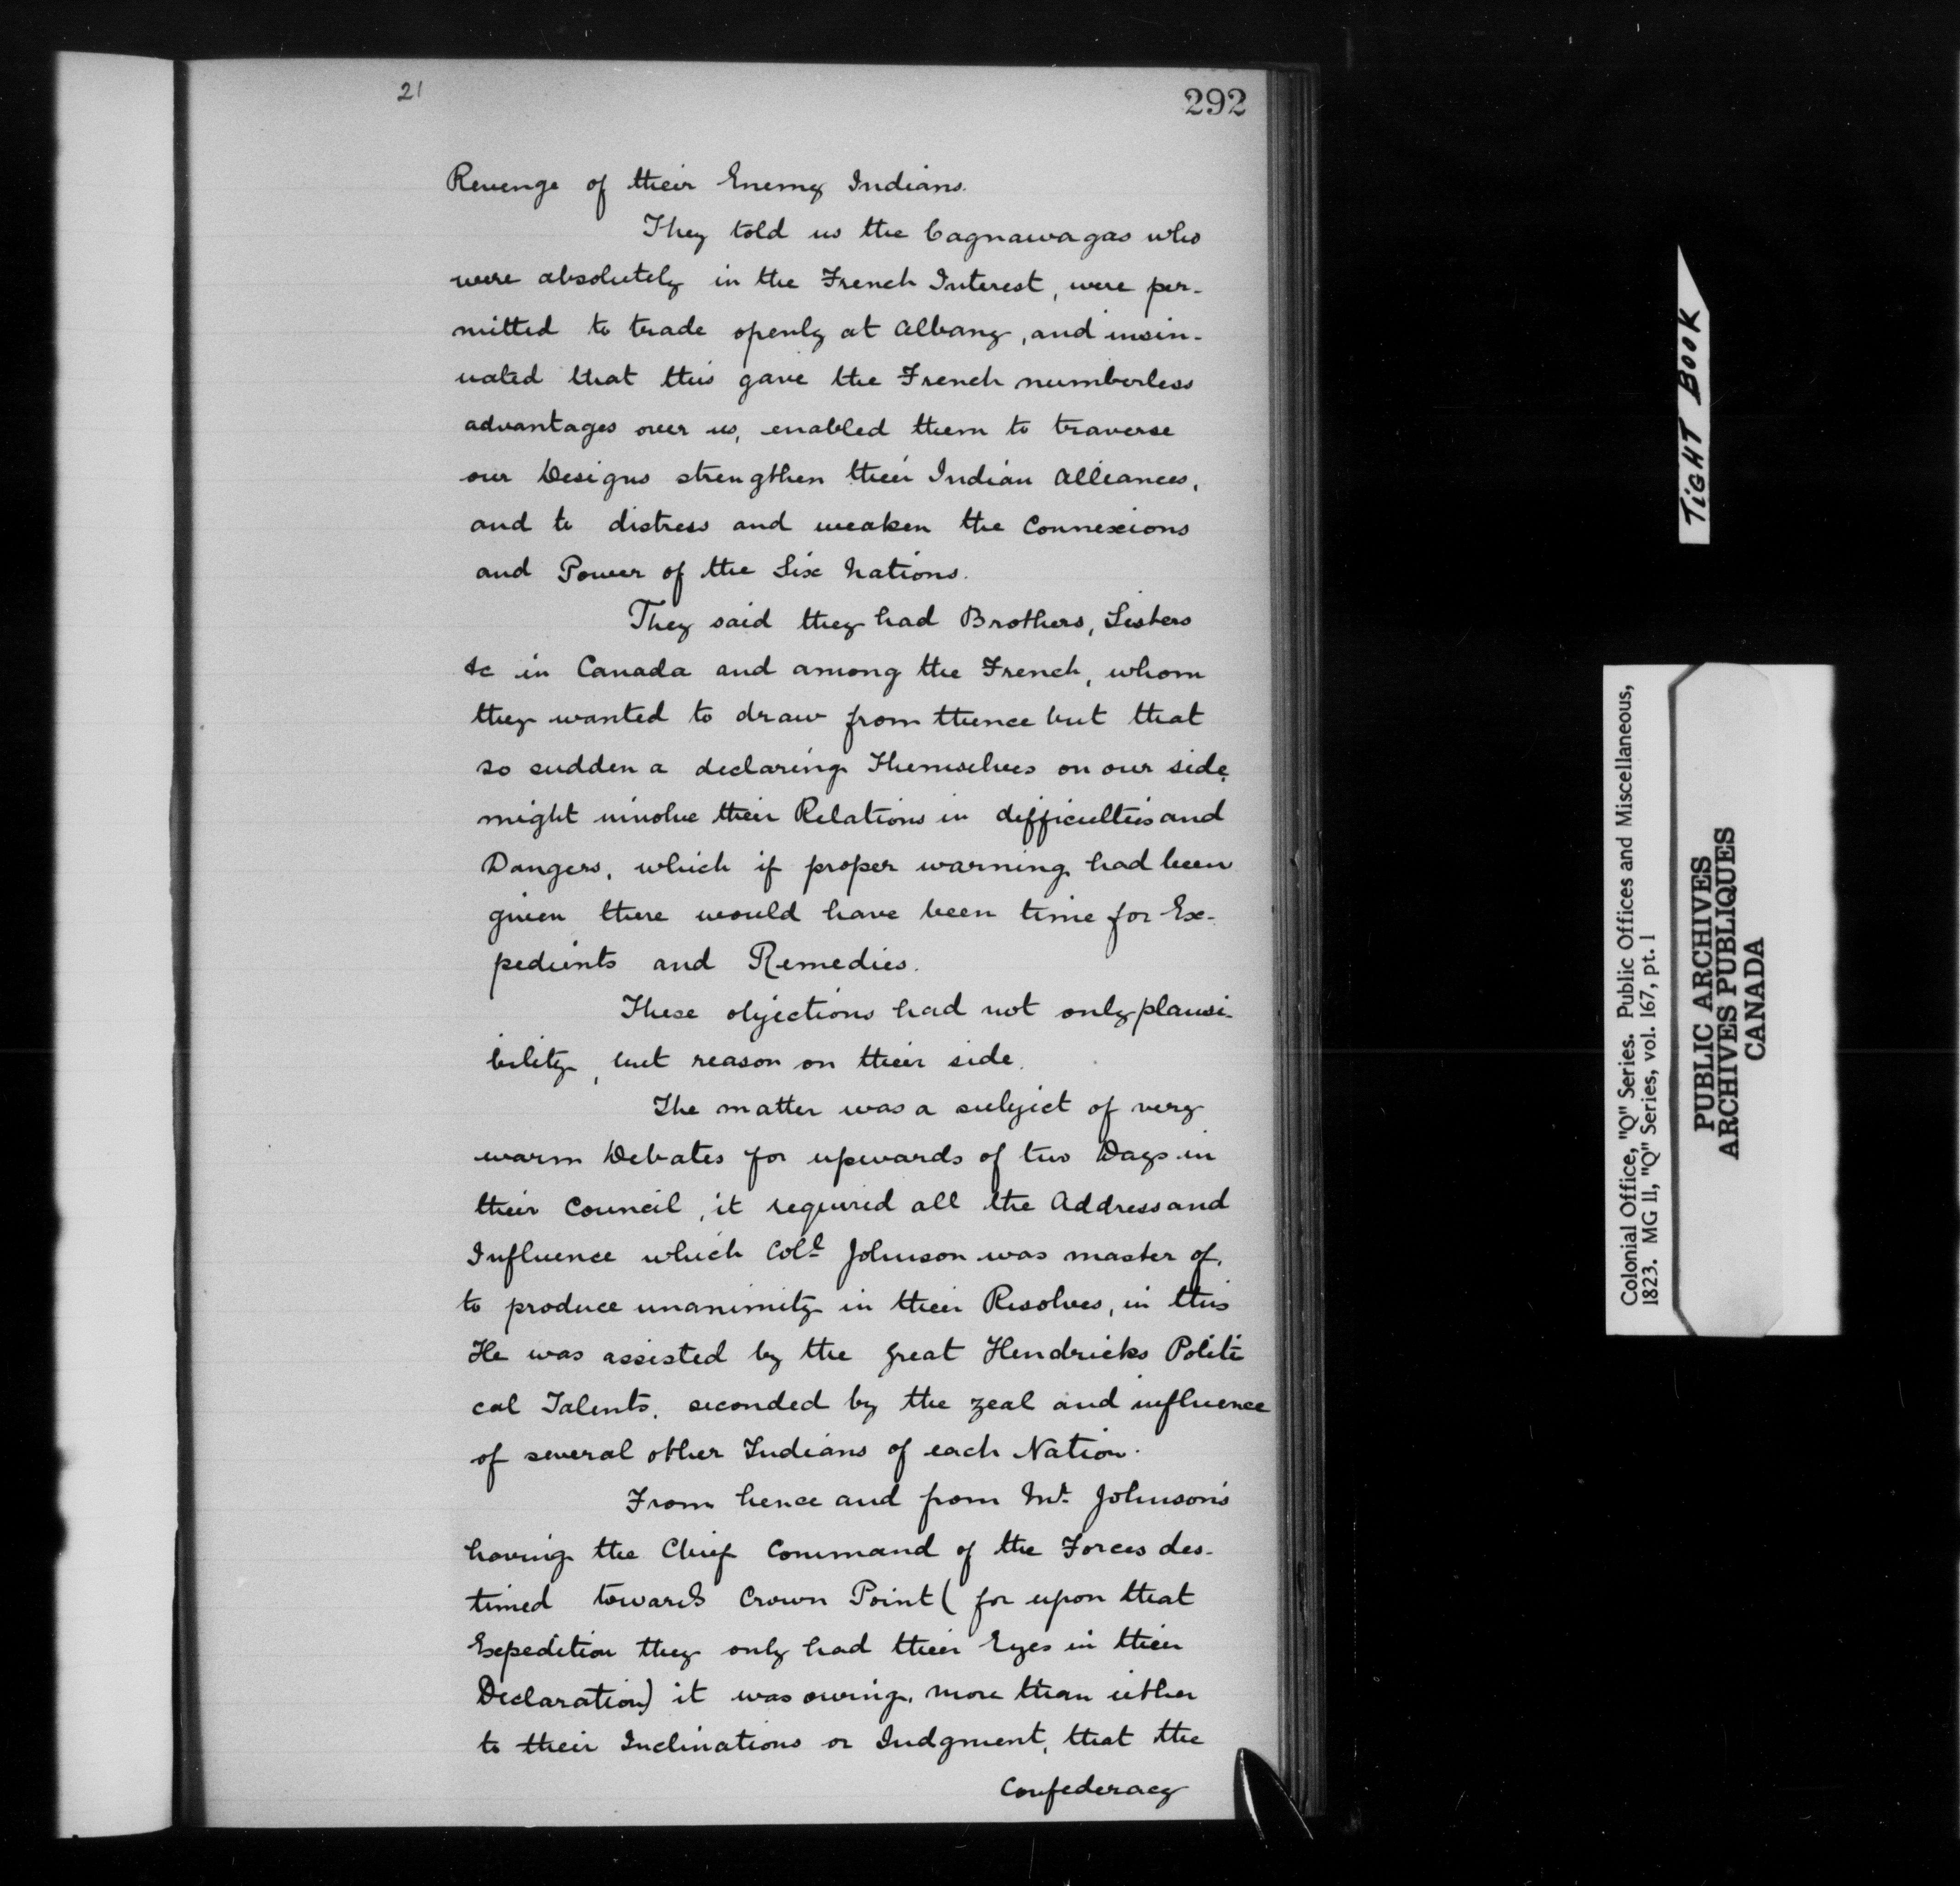 21
292
Revenge of their Enemy Indians.
They told us the Cagnawagas who
were absolutely in the French Interest, were per-
mitted to trade openly at Albany, and insin-
uated that this gave the French numberless
advantages over us, enabled them to traverse
our Designs strengthen their Indian Alliances,
and to distress and weaken the Connexions
and Power of the Six Nations.
They said they had Brothers, Sisters
&c in Canada and among the French, whom
they wanted to draw from thence but that
so sudden a declaring Themselves on our side,
might involve their Relations in difficulties and
Dangers, which if proper warning had been
given there would have been time for Ex-
pedients and Remedies.
These objections had not only plausi-
bility, but reason on their side.
The matter was a subject of very
warm Debates for upwards of two Days in
their Council, it required all the Address and
Influence which Coll. Johnson was master of,
to produce unanimity in their Resolves, in this
He was assisted by the great Hendricks Politi
cal Talents, seconded by the zeal and influence
of several other Indians of each Nation.
From hence and from Mr. Johnson's
having the Chief Command of the Forces des-
tined towards Crown Point (for upon that
Expedition they only had their Eyes in their
Declaration) it was owing, more than either
to their Inclinations or Judgment, that the
Confederacy
TIGHT BOOK
Colonial Office, "Q" Series. Public Offices and Miscellaneous,
1823. MG 11, "Q" Series, vol. 167, pt. 1
PUBLIC ARCHIVES
ARCHIVES PUBLIQUES
CANADA